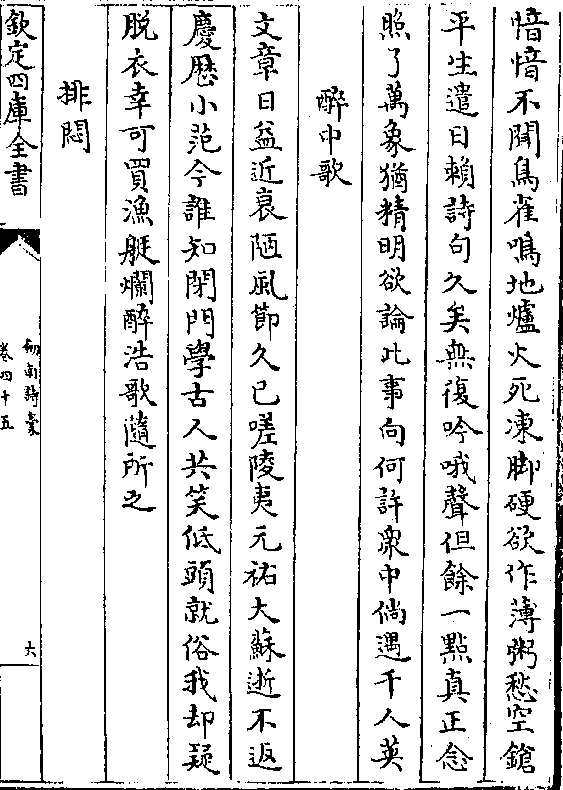 愔愔不聞鳥雀鳴地爐火死凍脚硬欲作薄粥愁空鎗
平生遣日賴詩句久矣無復吟哦聲但餘一點真正念
照了萬象猶精明欲論此事向何許衆中倘遇千人英
醉中歌
文章日益近衰陋風節久已嗟陵夷元祐大蘇逝不返
慶歷小范今誰知閉門學古人共笑低頭就俗我却疑
脱衣幸可買漁艇爛醉浩歌隨所之
排悶
欽定四庫全書
劒南詩稾
卷四十五
六